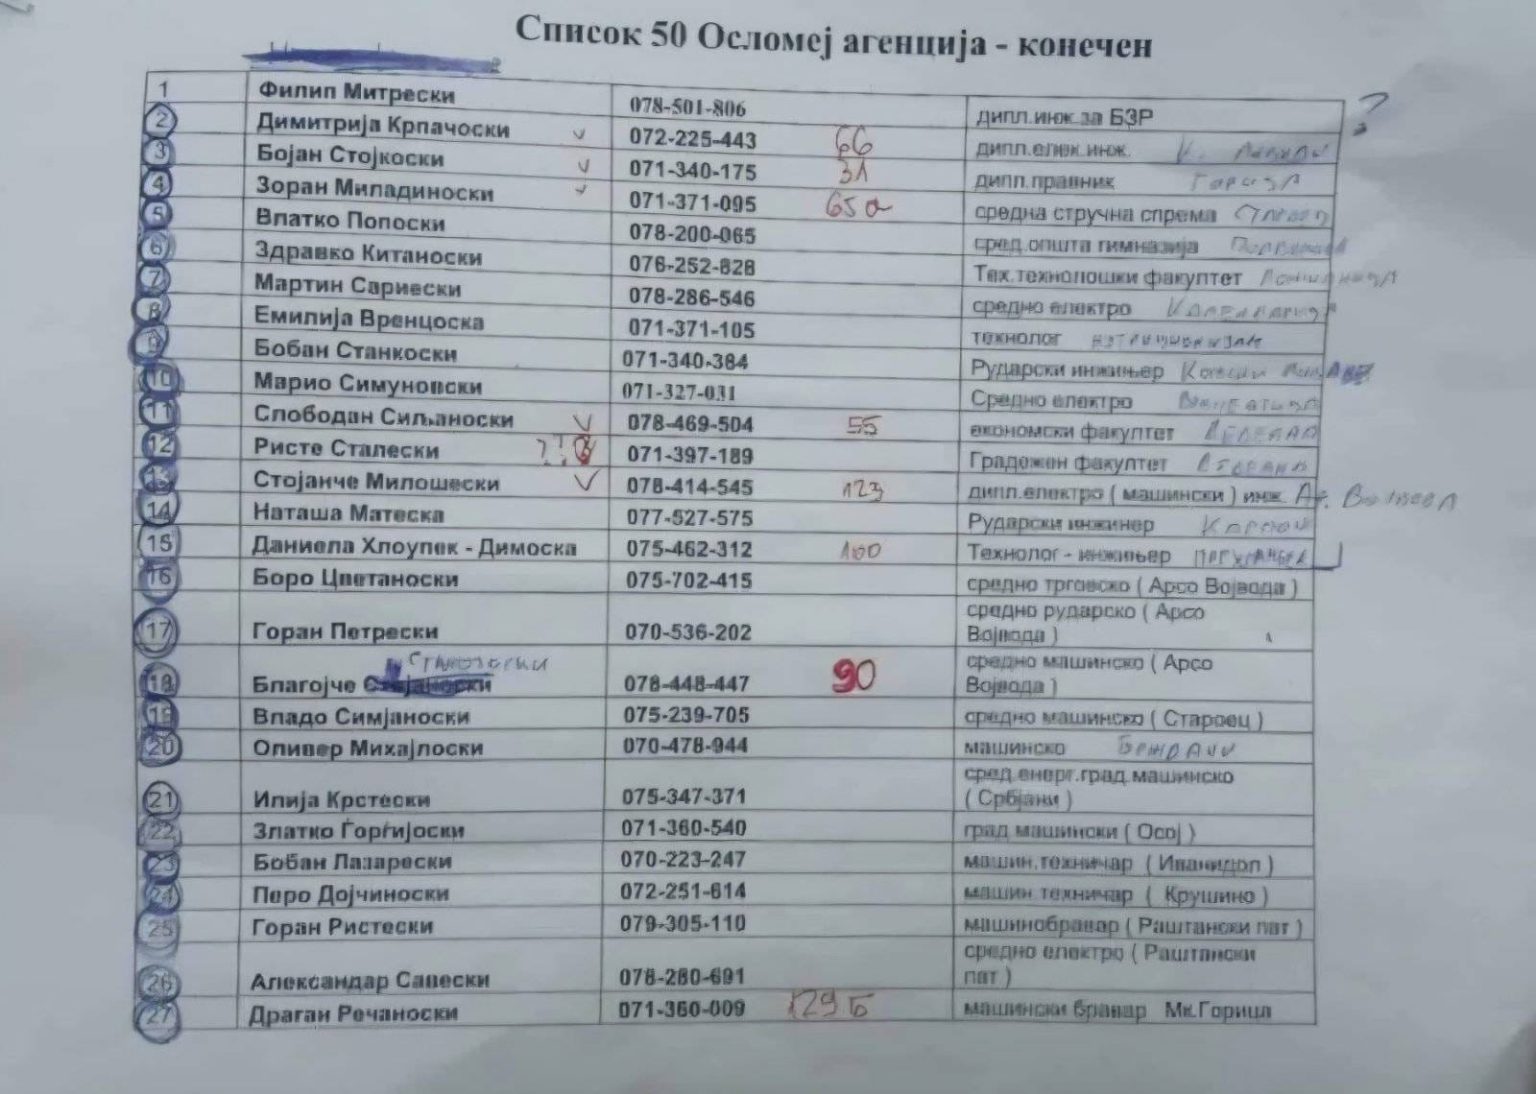 Список 50 Осломеј агенција - конечен
1 Филип Митрески 078-501-806 дипл.инж.за БЗР ?
2 Димитрија Крпачоски 072-225-443 66 дипл.елек.инж.
3 Бојан Стојкоски 071-340-175 31 дипл.правник
4 Зоран Миладиноски 071-371-095 65а средна стручна спрема
5 Влатко Попоски 078-200-065 сред.општа гимназија
6 Здравко Китаноски 076-252-828 Тех.технолошки факултет
7 Мартин Сариески 078-286-546 средно електро
8 Емилија Вренцоска 071-371-105 технолог
9 Бобан Станкоски 071-340-384 Рударски инжињер
10 Марио Симуновски 071-327-031 Средно електро
11 Слободан Сиљаноски 078-469-504 55 економски факултет
12 Ристе Сталески 071-397-189 Градежен факултет
13 Стојанче Милошески 078-414-545 123 дипл.електро ( машински ) инж.
14 Наташа Матеска 077-527-575 Рударски инжинер
15 Даниела Хлоупек - Димоска 075-462-312 100 Технолог - инжињер
16 Боро Цветаноски 075-702-415 средно трговско ( Арсо Војвода )
17 Горан Петрески 070-536-202 средно рударско ( Арсо
Војвода )
18 Благојче 078-448-447 90 средно машинско ( Арсо
Војвода )
19 Владо Симјаноски 075-239-705 средно машинско ( Староец )
20 Оливер Михајлоски 070-478-944 машинско
21 Илија Крстески 075-347-371 сред.енерг.град.машинско
( Србјани )
22 Златко Ѓорѓијоски 071-360-540 град.машински ( Осој )
23 Бобан Лазарески 070-223-247 машин.техничар ( Иванидол )
24 Перо Дојчиноски 072-251-614 машин.техничар ( Крушино )
25 Горан Ристески 079-305-110 машинобравар ( Раштански пат )
26 Александар Савески 078-280-691 средно електро ( Раштански
пат )
27 Драган Речаноски 071-360-009 129 Б машински бравар Мк.Горица